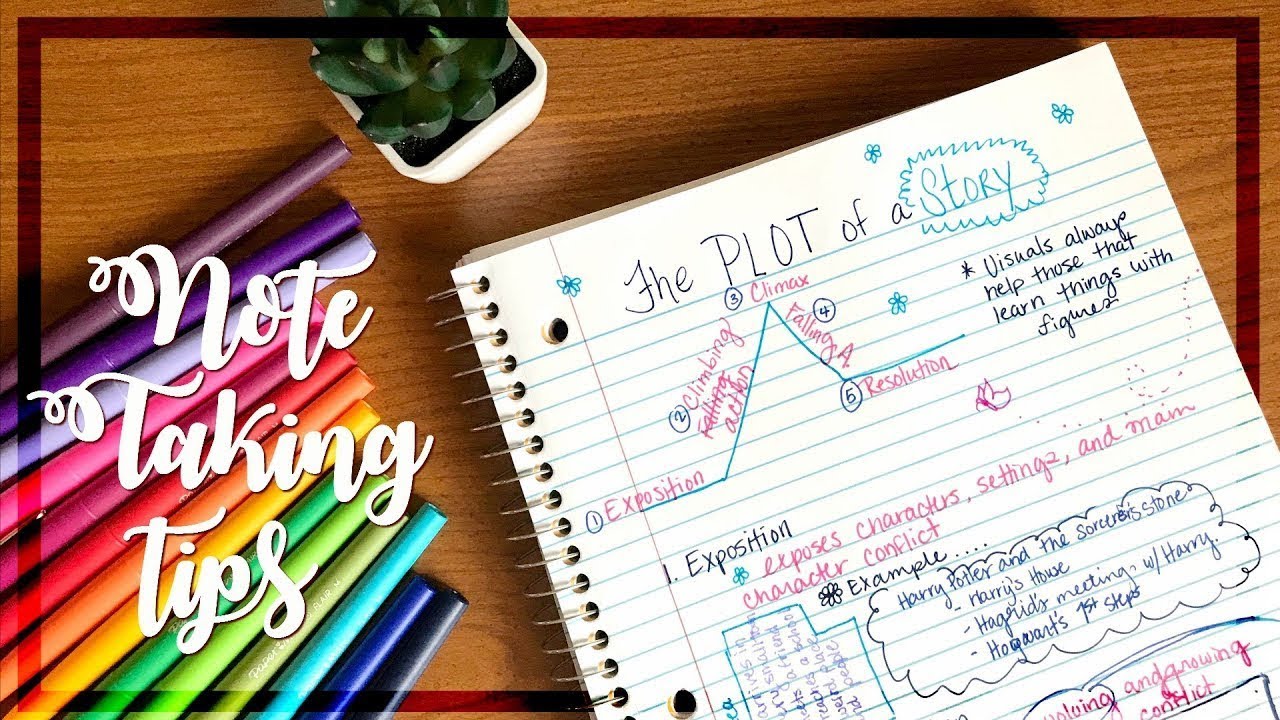 Note
Taking
Tips
PAPERMATE FLAIR M
The PLOT of a Story
* Visuals always
help those that
learn things with
figures
③ Climax
④
Falling A
② Climbing
Falling
action
⑤ Resolution
① Exposition
1. Exposition
exposes characters, settings, and main
character conflict
Example....
Harry Potter and the Sorcerer's Stone
- Harry's House
- Hagrid's meeting w/ Harry
- Hogwart's 1st steps
and growing
conflict